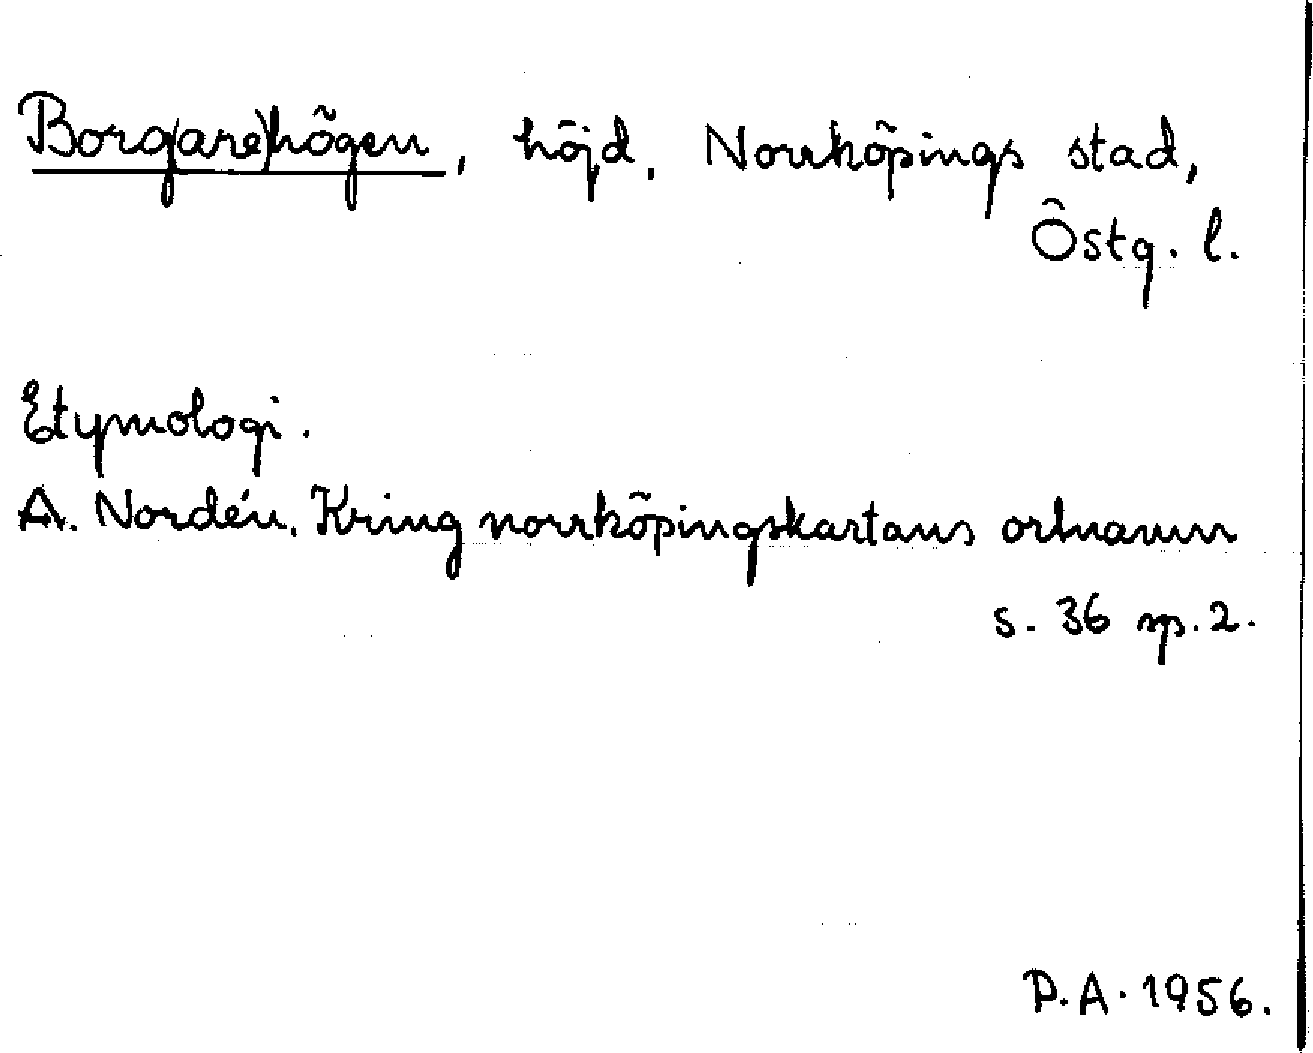 Borg(are)högen, höjd. Norrköpings stad,
Östg. l.
Etymologi.
A. Nordén. Kring norrköpingskartans ortnamn
s. 36 sp. 2.
P.A. 1956.